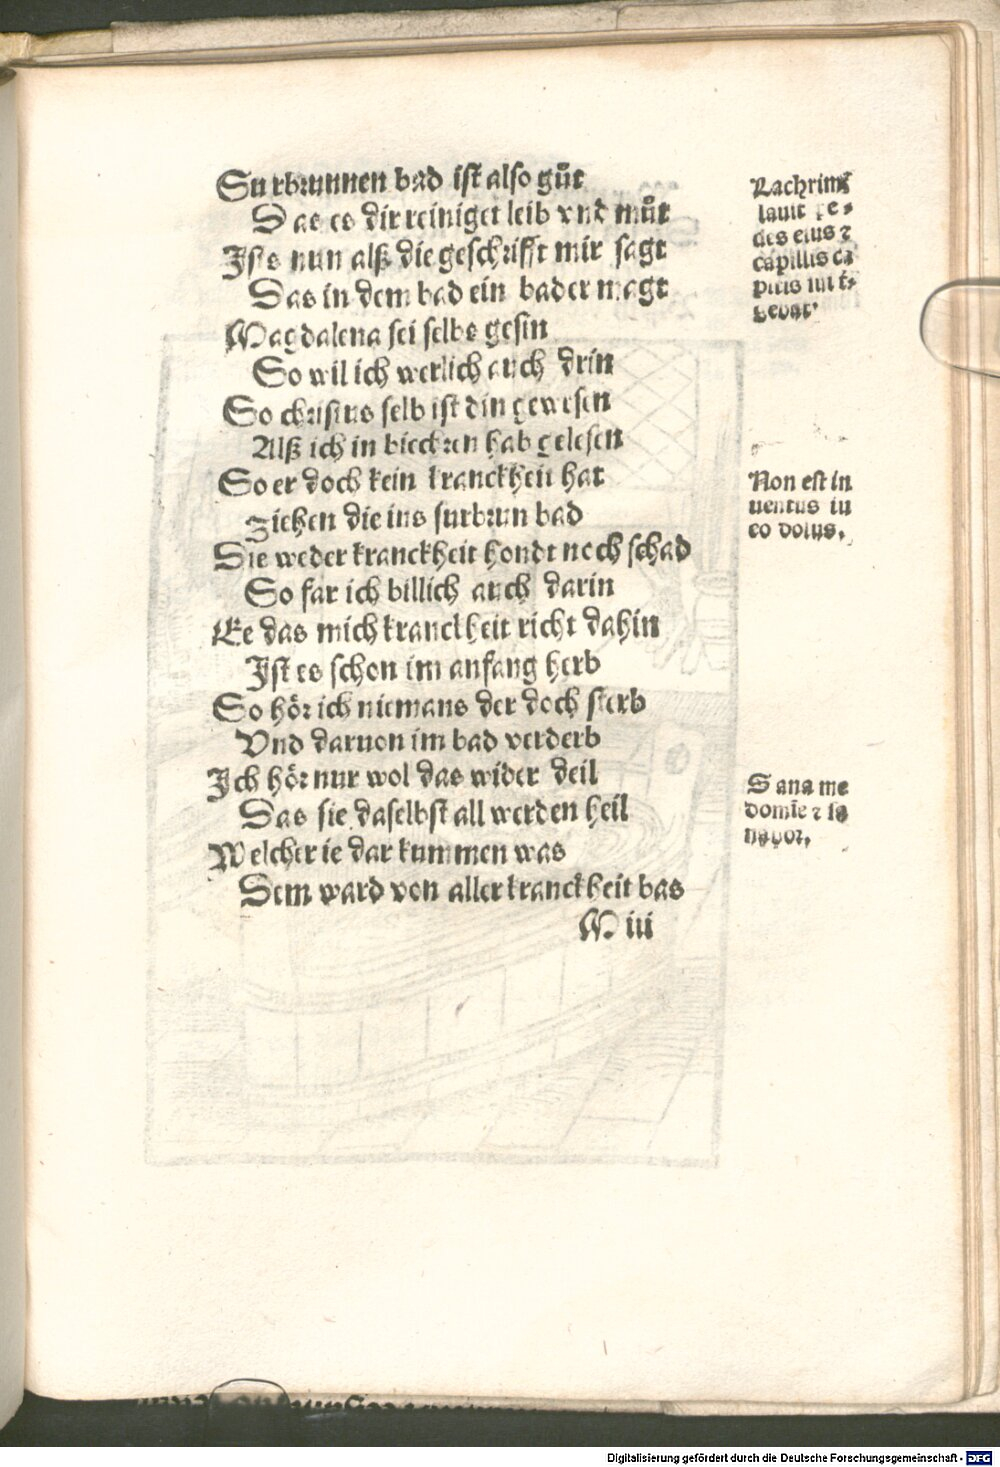 Surbrunnen bad ist also guͦt
Das es dir reiniget leib vnd muͦt
Ist es nun alß die geschrifft mir sagt
Das in dem bad ein bader magt
Magdalena sei selbs gesin
So wil ich werlich auch drin
So christus selb ist din gewesen
Alß ich in biechren hab gelesen
So er doch kein kranckheit hat
Ziehen die ins surbrun bad
Die weder kranckheit hondt noch schad
So far ich billich auch darin
Ee das mich kranckheit richt dahin
Ist es schon im anfang herb
So hör ich niemans der doch sterb
Vnd daruon im bad verderb
Ich hör nur wol das wider deil
Das sie daselbst all werden heil
Welcher ie dar kummen was
Dem ward von aller kranckheit bas
M iii
Lachrimis
lauit pe-
des eius ⁊
capillis ca
pitis
Non est in
uentus in
eo dolus.
Sana me
domīe ⁊ sa
nabor.
Digitalisierung gefördert durch die Deutsche Forschungsgemeinschaft - DFG